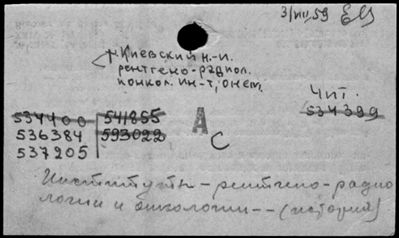 3/VIII 59
Киевский н.-и.
рентгено-радиол.
и онкол. ин-т, о нем.
Чит.
534399
534400 541865
536384 593022
537205
А
С
Институты - рентгено-радио
логии и онкологии -- (история)